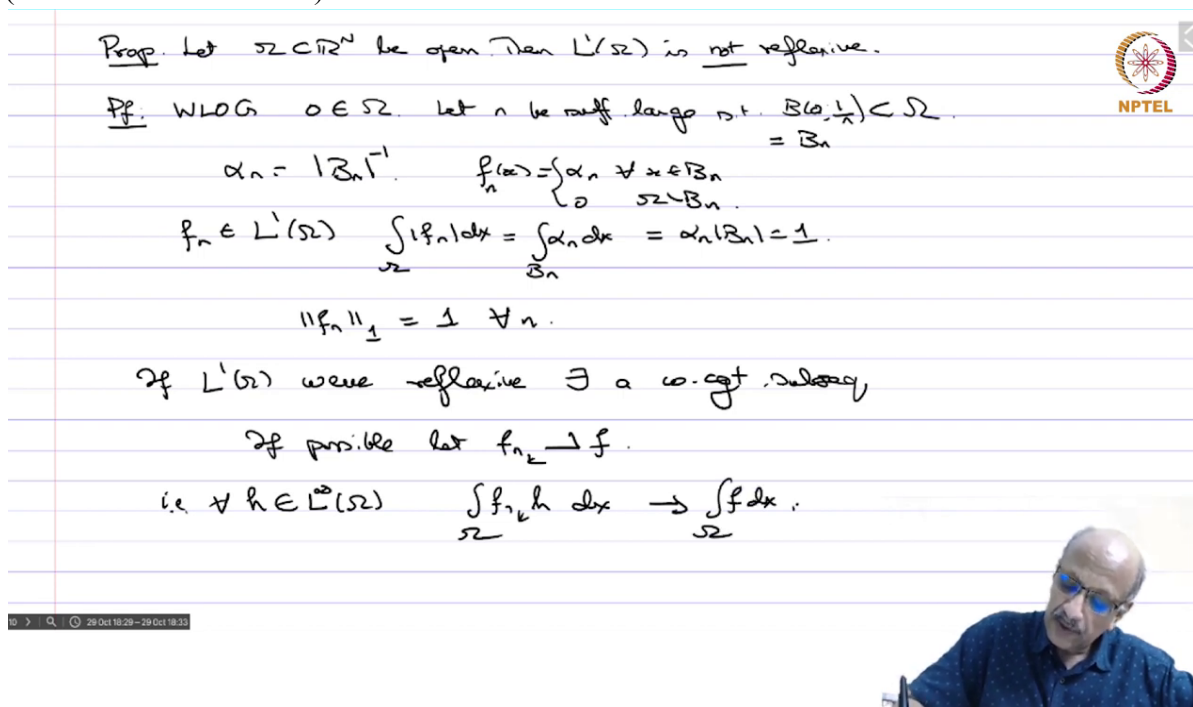 Prop. Let Ω ⊂ ℝᴺ be open. Then L¹(Ω) is not reflexive.
Pf: WLOG 0 ∈ Ω. Let n be suff. large s.t. B(0, 1/n) ⊂ Ω.
= Bₙ
αₙ = |Bₙ|⁻¹. fₙ(x) = { αₙ ∀ x ∈ Bₙ
0 Ω\Bₙ.
fₙ ∈ L¹(Ω) ∫_Ω |fₙ| dx = ∫_Bₙ αₙ dx = αₙ|Bₙ| = 1.
||fₙ||₁ = 1 ∀ n.
If L¹(Ω) were reflexive ∃ a w. cgt. subseq
If possible let f_{n_k} ⇀ f.
i.e. ∀ h ∈ L^∞(Ω) ∫_Ω f_{n_k} h dx → ∫_Ω f dx.
NPTEL
10 > 29 Oct 18:29 – 29 Oct 18:33